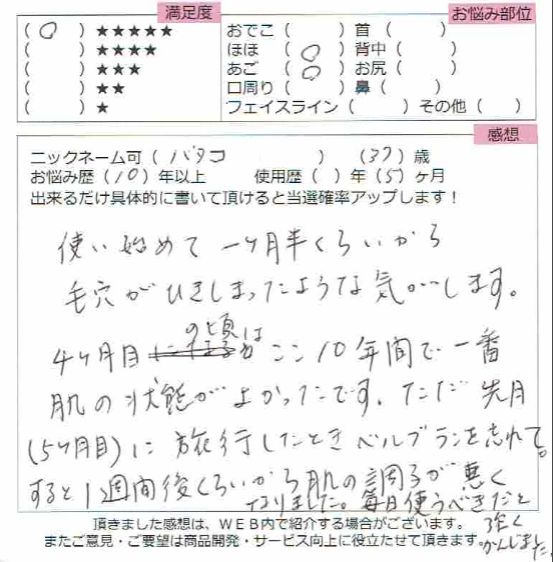 満足度
お悩み部位
( ○ ) ★★★★★
( ) ★★★★
( ) ★★★
( ) ★★
( ) ★
おでこ ( ) 首 ( )
ほほ ( ○ ) 背中 ( )
あご ( ○ ) お尻 ( )
口周り ( ) 鼻 ( )
フェイスライン ( ) その他 ( )
感想
ニックネーム可 ( バタコ ) (37) 歳
お悩み歴 (10) 年以上 使用歴 ( ) 年 (5) ヶ月
出来るだけ具体的に書いて頂けると当選確率アップします！
使い始めて一ヶ月半くらいから
毛穴がひきしまったような気がします。
4ヶ月目の頃はここ10年間で一番
肌の状態がよかったです。ただ先月
(5ヶ月目)に旅行したときベルブランを忘れて。
すると1週間後くらいから肌の調子が悪く
なりました。毎日使うべきだと
強く
かんじました。
頂きました感想は、WEB内で紹介する場合がございます。
またご意見・ご要望は商品開発・サービス向上に役立たせて頂きます。